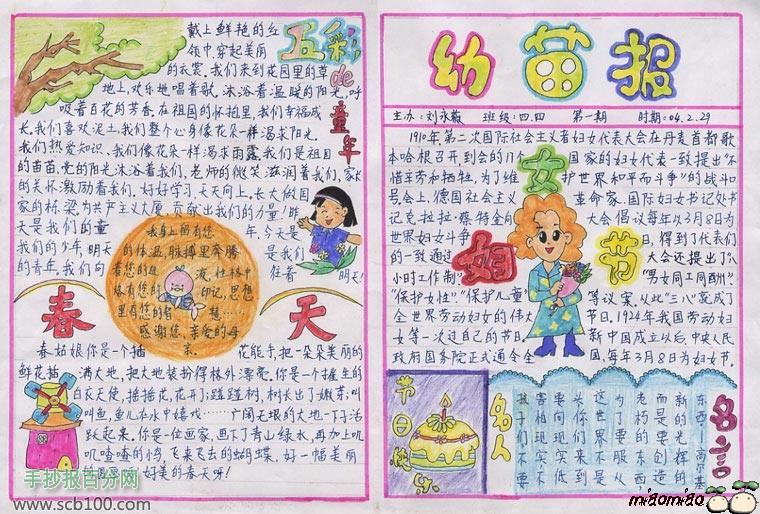 五彩
de
童年
戴上鲜艳的红
领巾穿起美丽
的衣裳。我们来到花园里的草
地上,欢乐地唱着歌,沐浴着温暖的阳光,呼
吸着百花的芳香。在祖国的怀抱里,我们幸福成
长,我们喜欢泥土,我们整个心身像花朵一样渴求阳光。
我们热爱知识,我们像花朵一样渴求雨露,我们是祖国
的苗苗,党的阳光沐浴着我们,老师的微笑滋润着我们,家长
的关怀激励着我们,好好学习,天天向上。长大做国
家的栋梁,为共产主义大厦,贡献出我们的力量!昨
天是我们的童年,今天是
我们的少年,明天是我们
的青年,我们向往着明天!
我身上留有您
的体温,脉搏里奔腾
着您的血液,性格中
烙有您的印记,思想
里有您的智慧……
感谢您,亲爱的母
亲。
春天
春姑娘你是一个插花能手,把一朵朵美丽的
鲜花插满大地,把大地装扮得格外漂亮。你是一个催生的
白衣天使,摇摇花,花开了;碰碰树,树长出了嫩芽;叫
叫鱼,鱼儿在水中嬉戏……广阔无垠的大地一下子活
跃起来。你是一位画家,画下了青山绿水,再加上叽
叽喳喳的小鸟,飞来飞去的蝴蝶,好一幅美丽
好美的春天呀!
手抄报百分网
www.scb100.com
幼苗报
主办:刘永薇 班级:四.四 第一期 时期:04.2.29
1910年,第二次国际社会主义者妇女代表大会在丹麦首都歌
本哈根召开,到会的17个国家的妇女代表一致提出"不
惜辛劳和牺牲,为了维护世界和平而斗争"的战斗口
号会上,德国社会主义革命家、国际妇女书记处书
记克拉拉·蔡特金向大会倡议每年以3月8日为
世界妇女斗争日,得到了代表们
的一致通过大会还提出了"八
小时工作制""男女同工同酬".
"保护女性""保护儿童"等议案,从此"三八"就成了
全世界劳动妇女的伟大节日,1924年我国劳动妇
女等一次过自己的节日新中国成立以后,中央人民
政府国务院正式通令全国,每年3月8日为妇女节。
妇女节
节日快乐
名人
名言
东西——高尔基
miaomiao